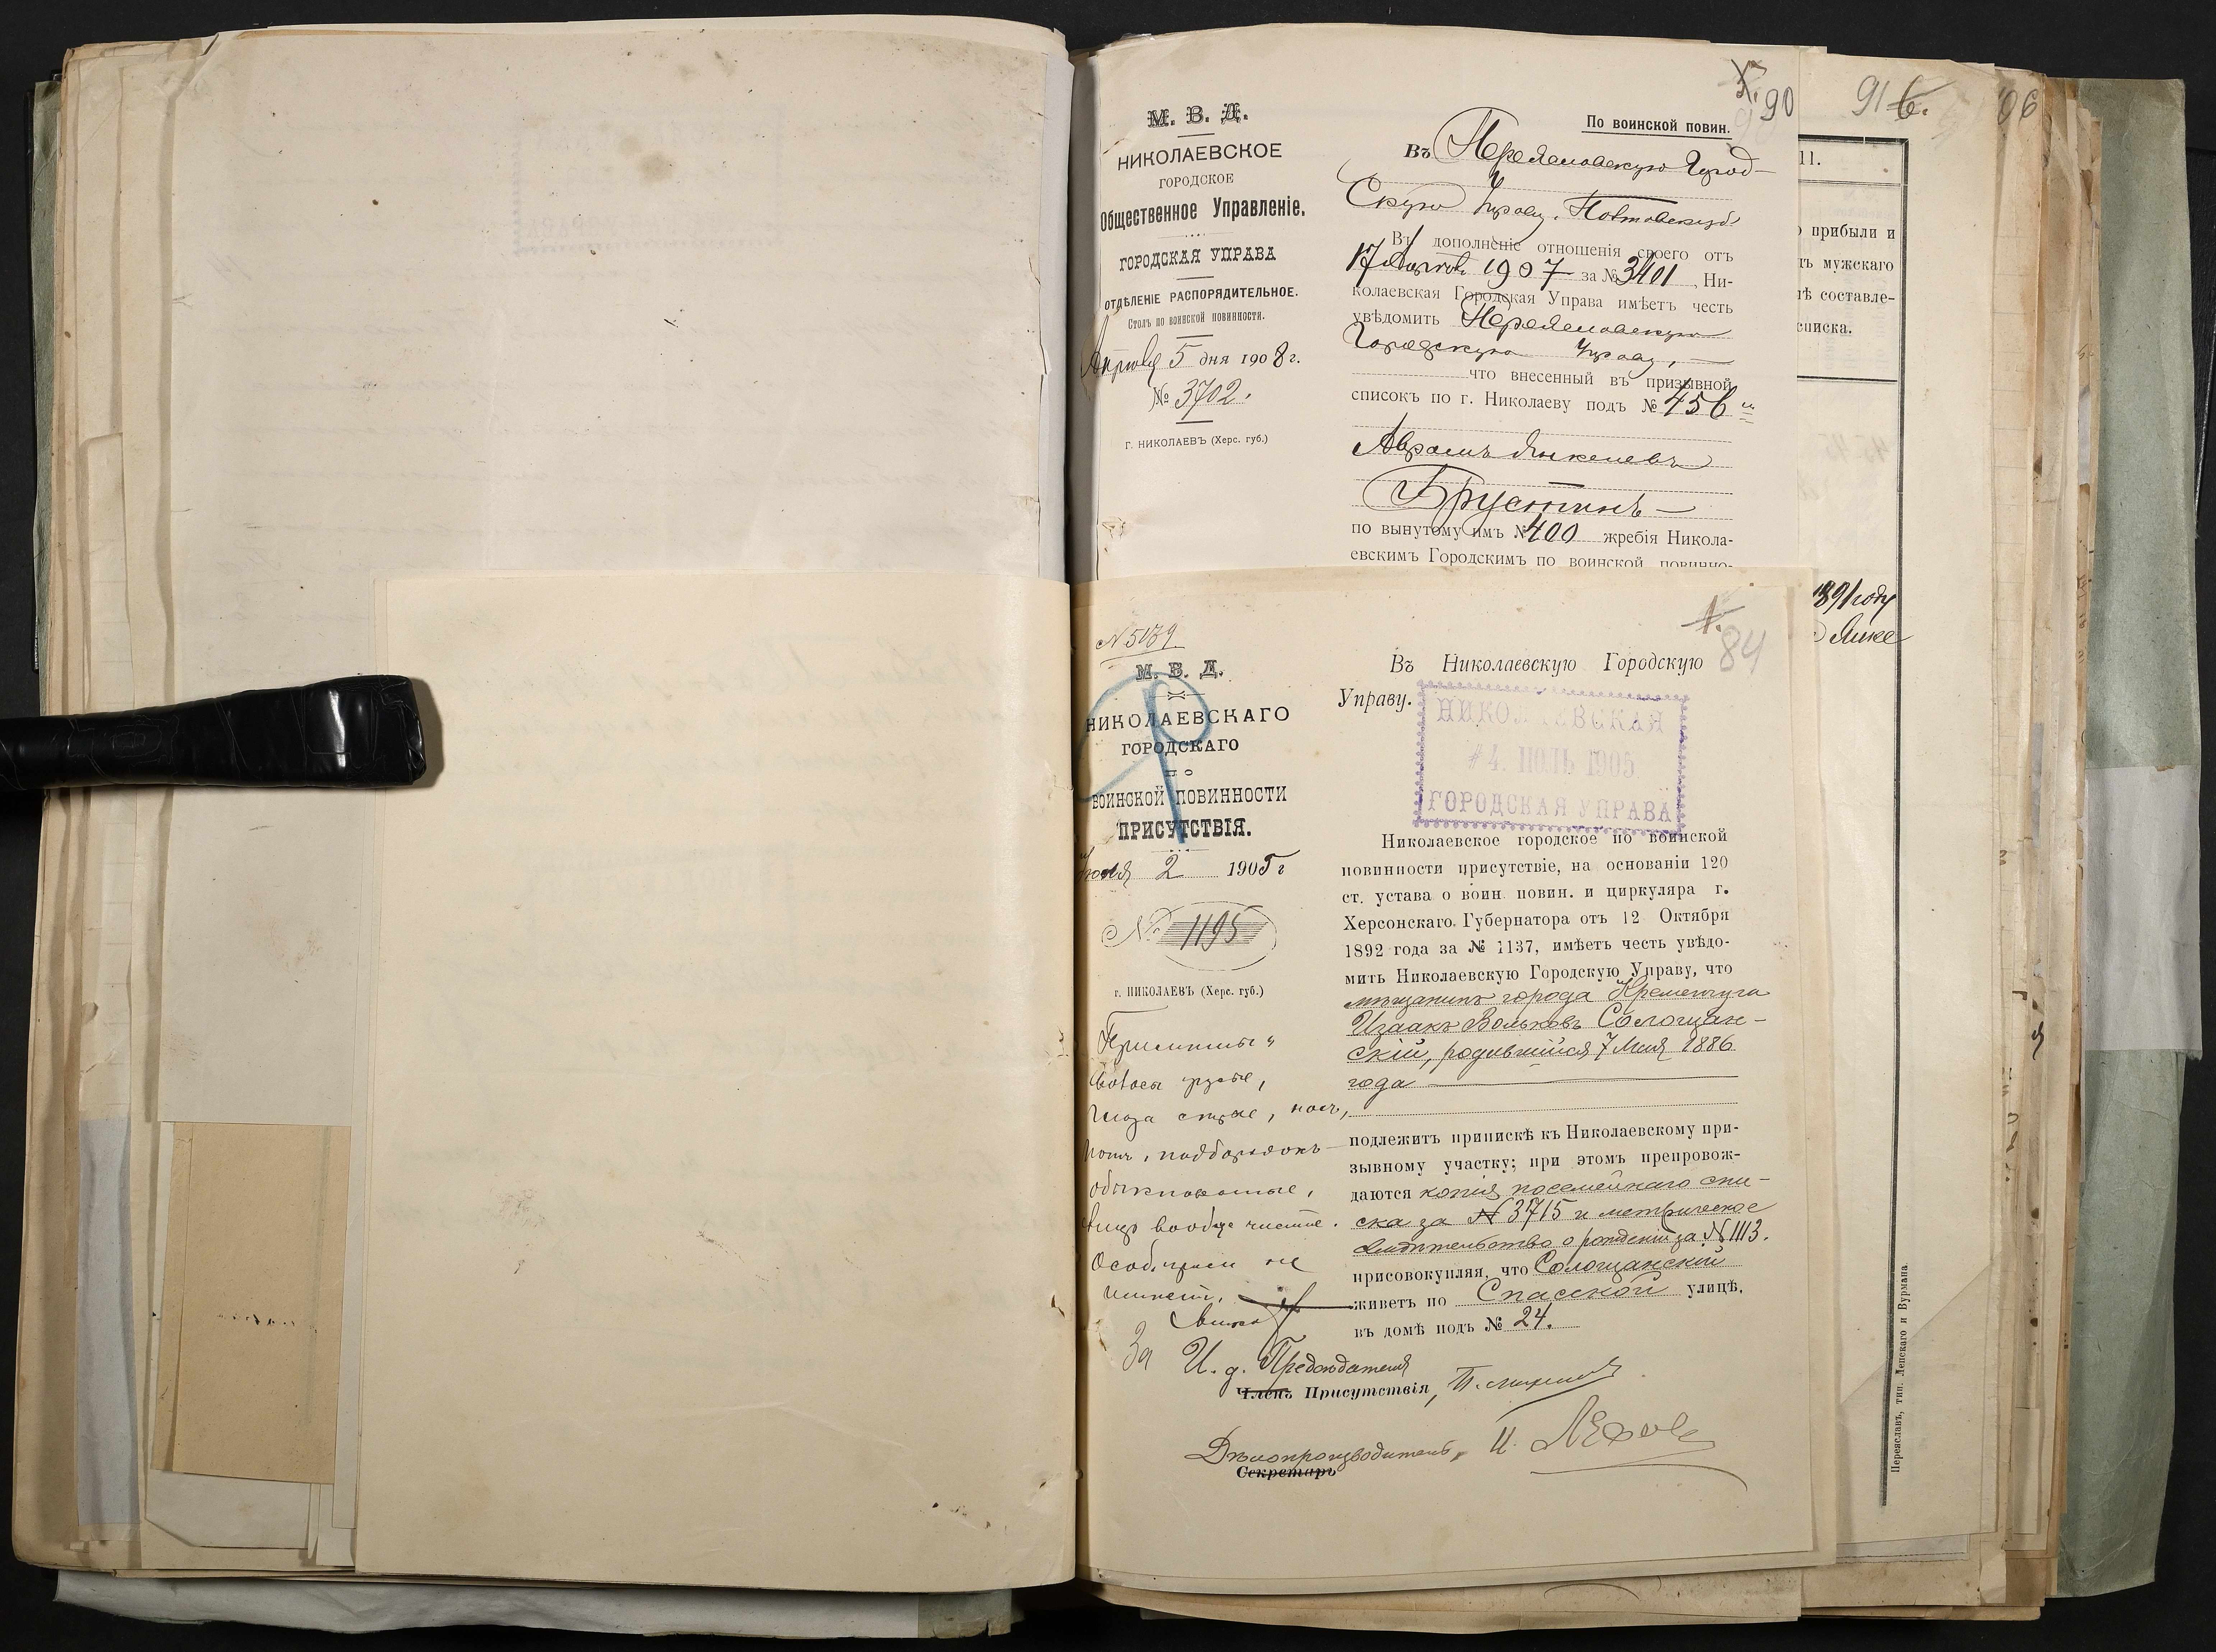 90
М. В. Д.
НИКОЛАЕВСКОЕ
ГОРОДСКОЕ
Общественное Управленіе.
ГОРОДСКАЯ УПРАВА
ОТДѢЛЕНІЕ РАСПОРЯДИТЕЛЬНОЕ.
Столъ по воинской повинности.
Апрѣля 5 дня 1908 г.
№ 3702.
г. НИКОЛАЕВЪ (Херс. губ.)
По воинской повин.
Въ Переяславскую Город-
скую Управу, Полтавской
Въ дополненіе отношенія своего отъ
17 1907 за № 3401, Ни-
колаевская Городская Управа имѣетъ честь
увѣдомить Переяславскую
Городскую Управу, —
что внесенный въ призывной
списокъ по г. Николаеву подъ № 456
Аврамъ Янкелевъ
Брустинъ —
по вынутому имъ № 400 жребія Никола-
евскимъ Городскимъ по воинской повинно-
91 6.
06
11.
прибыли и
ъ мужскаго
ѣ составле-
списка.
1891 году
Переяславъ, тип. Лепскаго и Вурмана
N 5139
М. В. Д.
НИКОЛАЕВСКАГО
ГОРОДСКАГО
ПО
ВОИНСКОЙ ПОВИННОСТИ
ПРИСУТСТВІЯ.
Іюля 2 1905 г
№ 1195
г. НИКОЛАЕВЪ (Херс. губ.)
Примѣты:
волосы русые,
глаза сѣрые, носъ,
ротъ, подбородокъ
обыкновенные,
лицо вообще чистое.
Особ. примѣтъ не
имѣетъ.
1.
84
Въ Николаевскую Городскую
Управу.
НИКОЛАЕВСКАЯ
4. ІЮЛЬ 1905
ГОРОДСКАЯ УПРАВА
Николаевское городское по воинской
повинности присутствіе, на основаніи 120
ст. устава о воин. повин. и циркуляра г.
Херсонскаго Губернатора отъ 12 Октября
1892 года за № 1137, имѣетъ честь увѣдо-
мить Николаевскую Городскую Управу, что
мѣщанинъ города Кременчуга
Изаакъ Вольковъ Сологщан-
скій, родившійся 7 Мая 1886
года
подлежитъ припискѣ къ Николаевскому при-
зывному участку; при этомъ препровож-
даются копія посемейнаго спи-
ска за № 3715 и метрическое
свидѣтельство о рожденіи за N 1113.
присовокупляя, что Сологщанскій
живетъ по Спасской улицѣ,
въ домѣ подъ № 24.
За И. д. Предсѣдателя
Членъ Присутствія,
Дѣлопроизводитель,
Секретарь